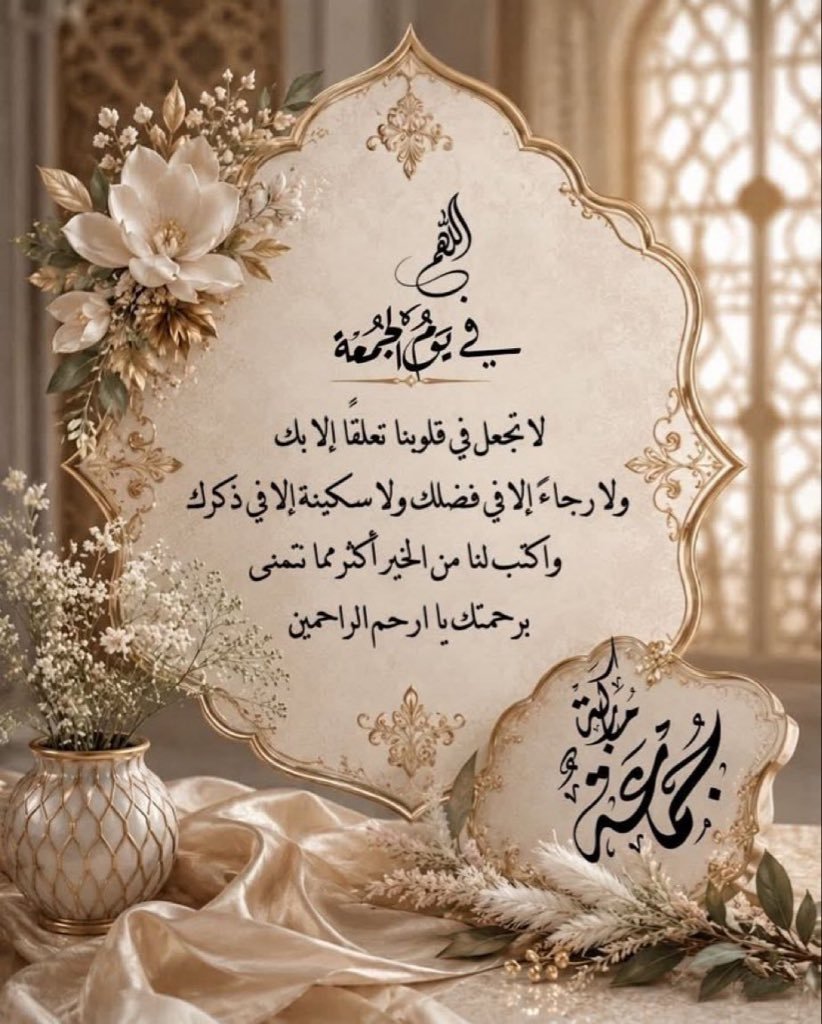 اللهم
في يَومُ الجُمعَة
لا تجعل في قلوبنا تعلقًا إلا بك
ولا رجاءً إلا في فضلك ولا سكينة إلا في ذكرك
واكتب لنا من الخير أكثر مما نتمنى
برحمتك يا ارحم الراحمين
جُمُعَة
مُبَاركَة